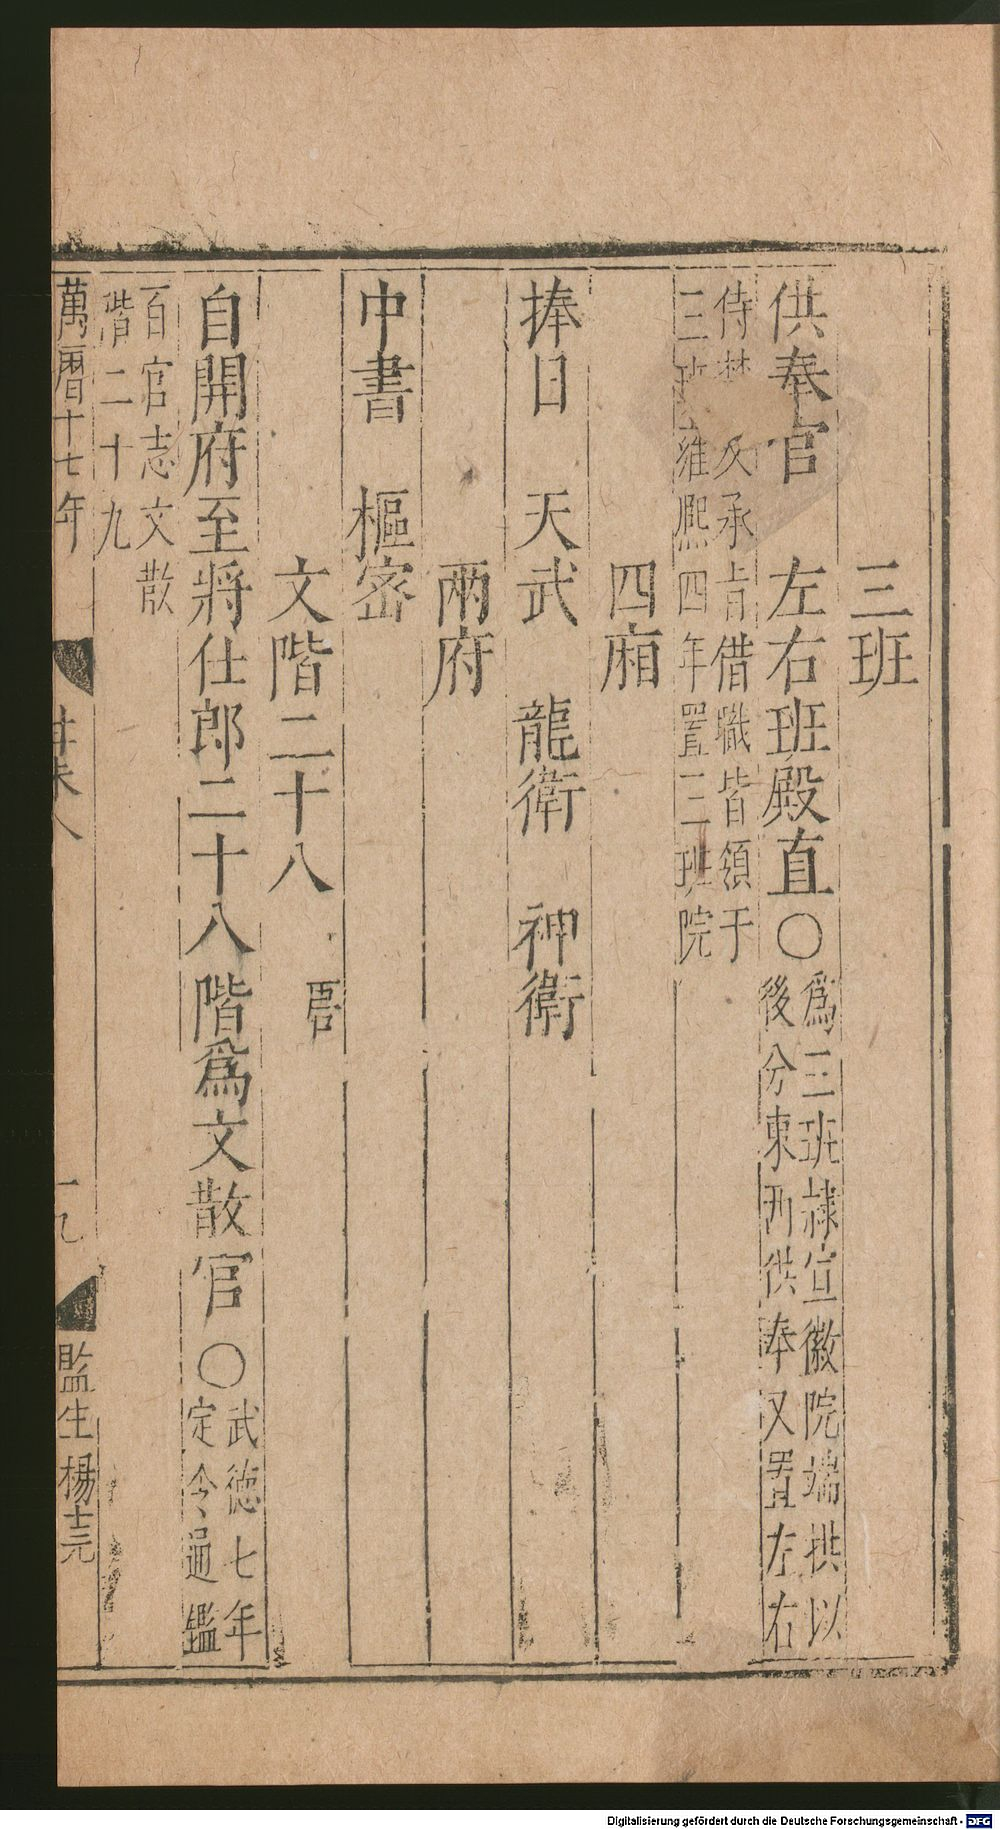 三班
供奉官 左右班殿直〇為三班隷宣徽院端拱以
後分東西供奉又置左右
侍禁及承㫖借職皆領于
三班雍熙四年置三班院
四廂
捧日 天武 龍衛 神衛
兩府
中書 樞宻
文階二十八
自開府至將仕郎二十八階爲文散官〇武徳七年
定令通鑑
百官志文散
階二十九
萬曆十七年 一九 監生楊士元
Digitalisierung gefördert durch die Deutsche Forschungsgemeinschaft - DFG